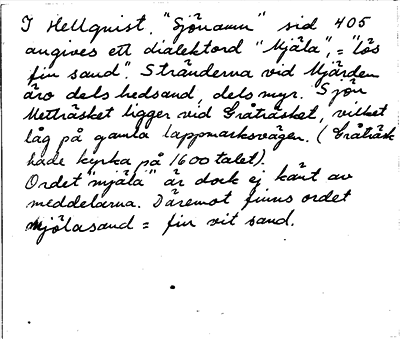 I Hellquist, "Sjönamn" sid 405
angives ett dialektord "Mjäla", = "lös
fin sand". Stränderna vid Mjärden
äro dels hedsand, dels myr. Sjön
Metträsket ligger vid Gråträsket, vilket
låg på gamla lappmarksvägen. (Gråträsk
hade kyrka på 1600 talet).
Ordet "mjäla" är dock ej känt av
meddelarna. Däremot finns ordet
mjölasand = fin vit sand.